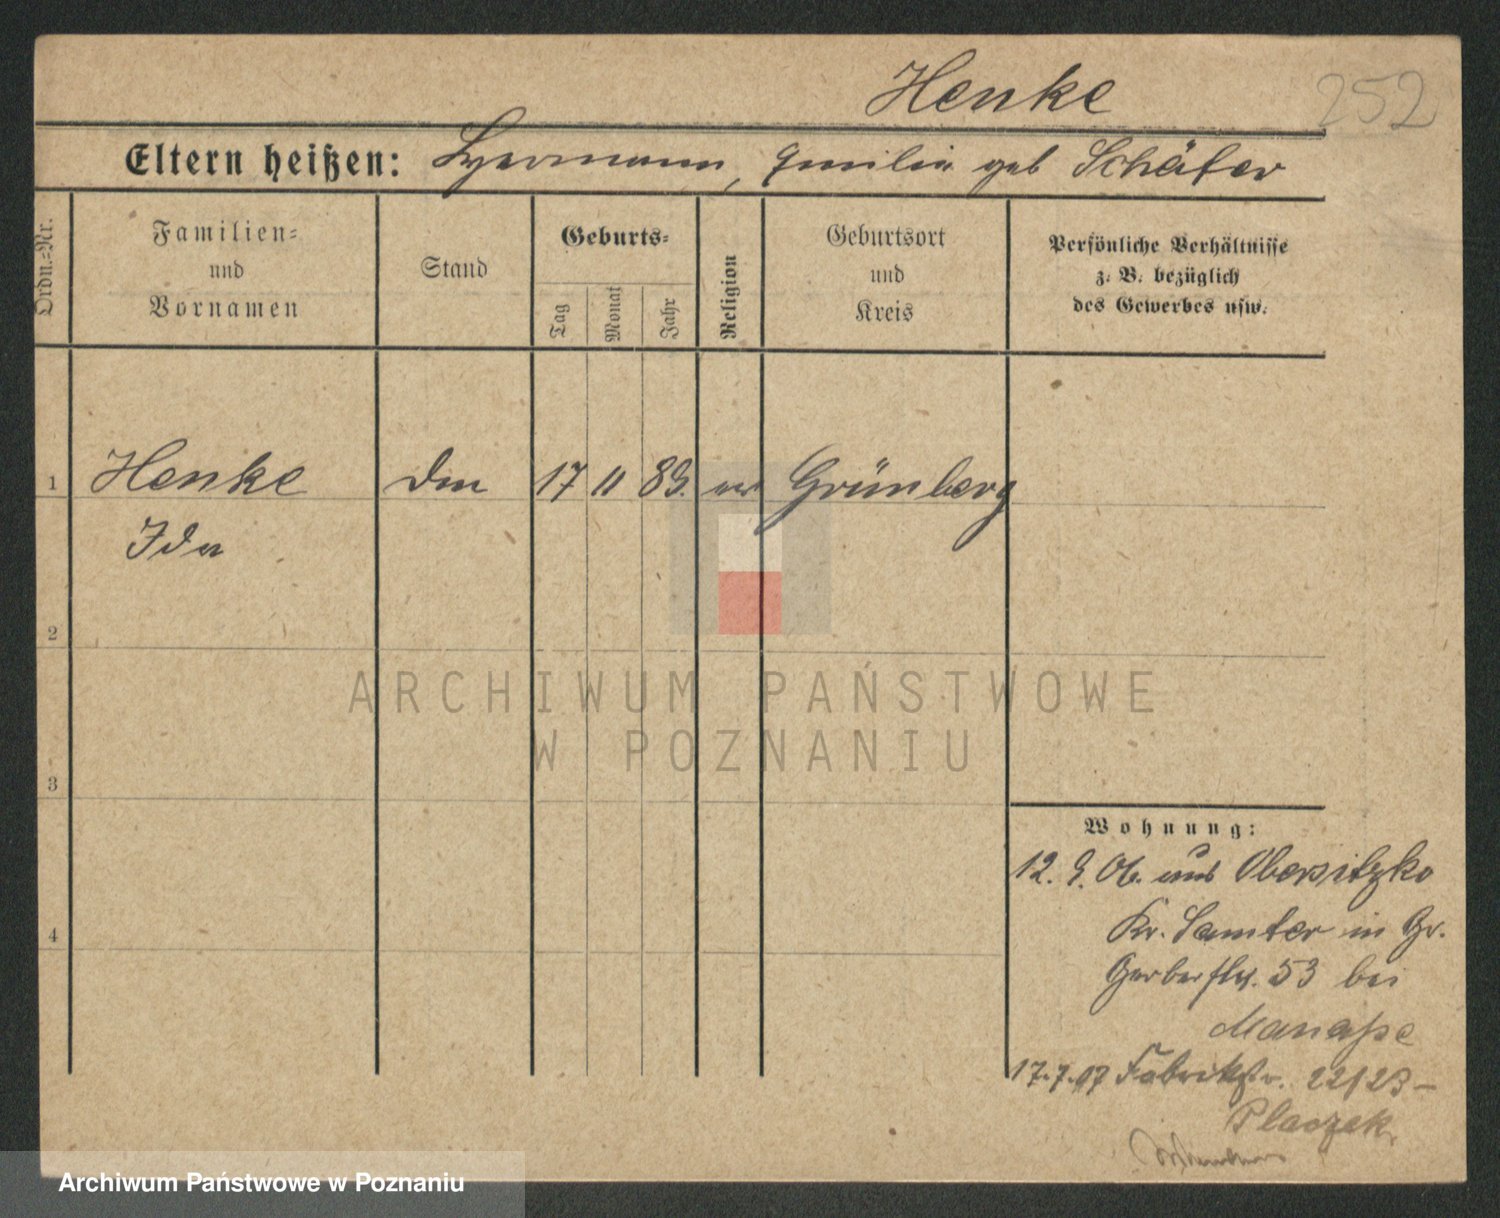 Henke 252
Eltern heißen: Hermann, Emilie geb Schäfer
Ordn.=Nr.
Familien=
und
Vornamen
Stand
Geburts=
Tag
Monat
Jahr
Religion
Geburtsort
und
Kreis
Persönliche Verhältnisse
z. B. bezüglich
des Gewerbes usw.
1 Henke 17 11 89. ev Grünberg
Ida
2
3
4
Wohnung:
12. 9. 06. aus Obersitzko
Kr. Samter in Gr.
Gerberstr. 53 bei
Manasse
17.7.07 Fabrikstr. 22/23 –
Placzek
ARCHIWUM PAŃSTWOWE
W POZNANIU
Archiwum Państwowe w Poznaniu